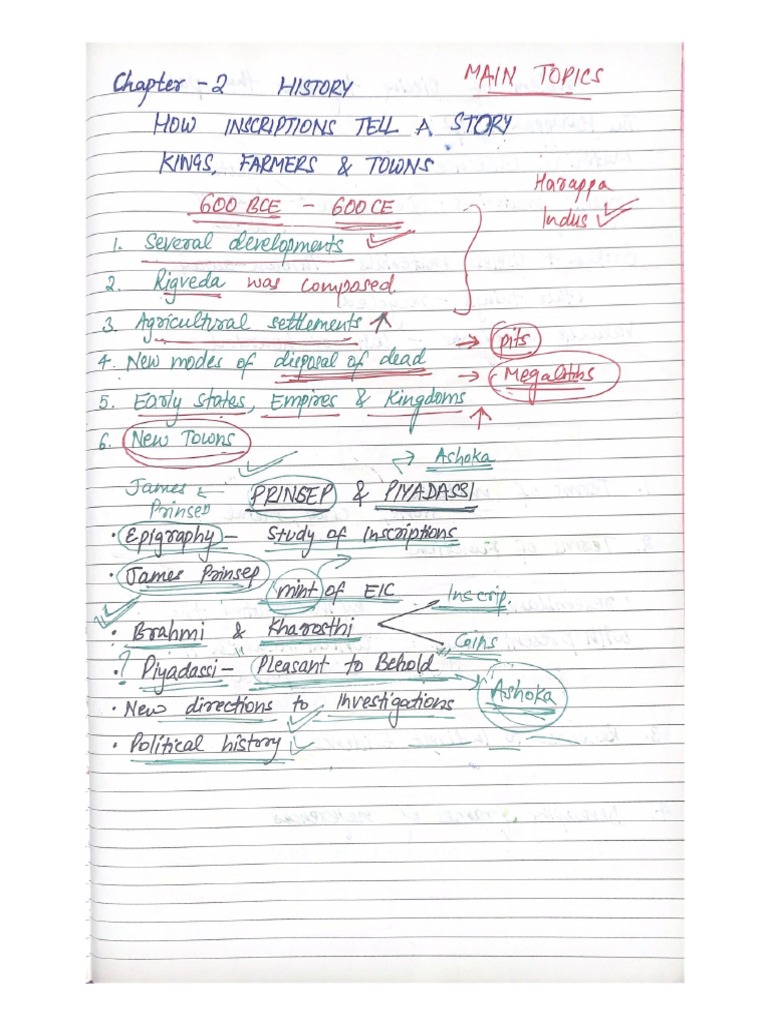 Chapter - 2 HISTORY MAIN TOPICS
HOW INSCRIPTIONS TELL A STORY
KINGS, FARMERS & TOWNS
Harappa
600 BCE - 600 CE
Indus
1. Several developments
2. Rigveda was composed
3. Agricultural settlements ↑
4. New modes of disposal of dead → pits
→ Megaliths
5. Early states, Empires & Kingdoms ↑
6. New Towns
Ashoka
James
Prinsep
PRINSEP & PIYADASSI
• Epigraphy - Study of Inscriptions
• James Prinsep
mint of EIC
Inscrip.
• Brahmi & Kharosthi
Coins
• ? Piyadassi - "Pleasant to Behold"
Ashoka
• New directions to Investigations
• Political history